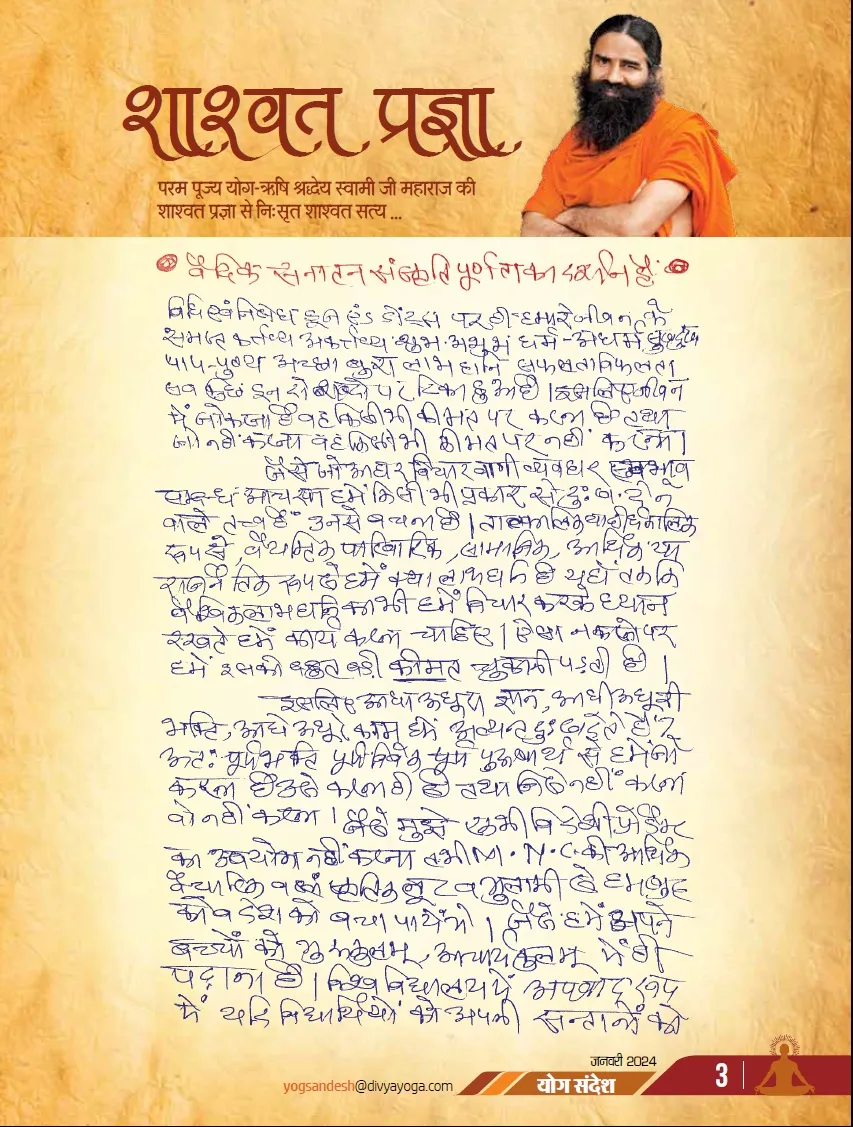 शाश्वत प्रज्ञा
परम पूज्य योग-ऋषि श्रद्धेय स्वामी जी महाराज की
शाश्वत प्रज्ञा से निःसृत शाश्वत सत्य ...
वैदिक सनातन संस्कृति पूर्णता का दर्शन है
विधि एवं निषेध डूज एंड डोंट्स पर ही हमारे जीवन के
समस्त कर्त्तव्य अकर्त्तव्य शुभ-अशुभ धर्म-अधर्म
पाप-पुण्य अच्छा बुरा लाभ हानि सफलता विफलता
सब कुछ इन दो शब्दों पर टिका हुआ है। इसलिए जीवन
में जो करना है वह किसी भी कीमत पर करना है तथा
जो नहीं करना वह किसी भी कीमत पर नहीं करना।
जैसे जो आहार विचार वाणी व्यवहार स्वभाव
सम्बन्ध आचरण हमें किसी भी प्रकार से दुःख देने
वाले तत्त्व हैं उनसे बचना है। तात्कालिक या दीर्घकालिक
रूप से, वैयक्तिक पारिवारिक, सामाजिक, आर्थिक या
राजनैतिक रूप से हमें क्या लाभ हानि है यहाँ तक कि
वैश्विक लाभ हानि का भी हमें विचार करके ध्यान
रखते हमें कार्य करना चाहिए। ऐसा न करने पर
हमें इसकी बहुत बड़ी कीमत चुकानी पड़ती है।
इसलिए आधा अधूरा ज्ञान, आधी अधूरी
भक्ति, आधे अधूरे काम हमें अत्यन्त दुःख देते हैं
अतः पूर्ण भक्ति पूर्ण विवेक पूर्ण पुरुषार्थ से हमें जो
करना है उसे करना ही है तथा जिसे नहीं करना
वो नहीं करना। जैसे मुझे कभी विदेशी प्रोडक्ट
का उपयोग नहीं करना तभी M.N.C. की आर्थिक
वैचारिक व सांस्कृतिक लूट व गुलामी से हम खुद
को व देश को बचा पायेंगे। जैसे हमें अपने
बच्चों को गुरुकुलम्, आचार्यकुलम् में ही
पढ़ाना है। विश्वविद्यालय में अपवाद रूप
में यदि विद्यार्थियों को अपनी सन्तानों को
जनवरी 2024
yogsandesh@divyayoga.com
योग संदेश
3